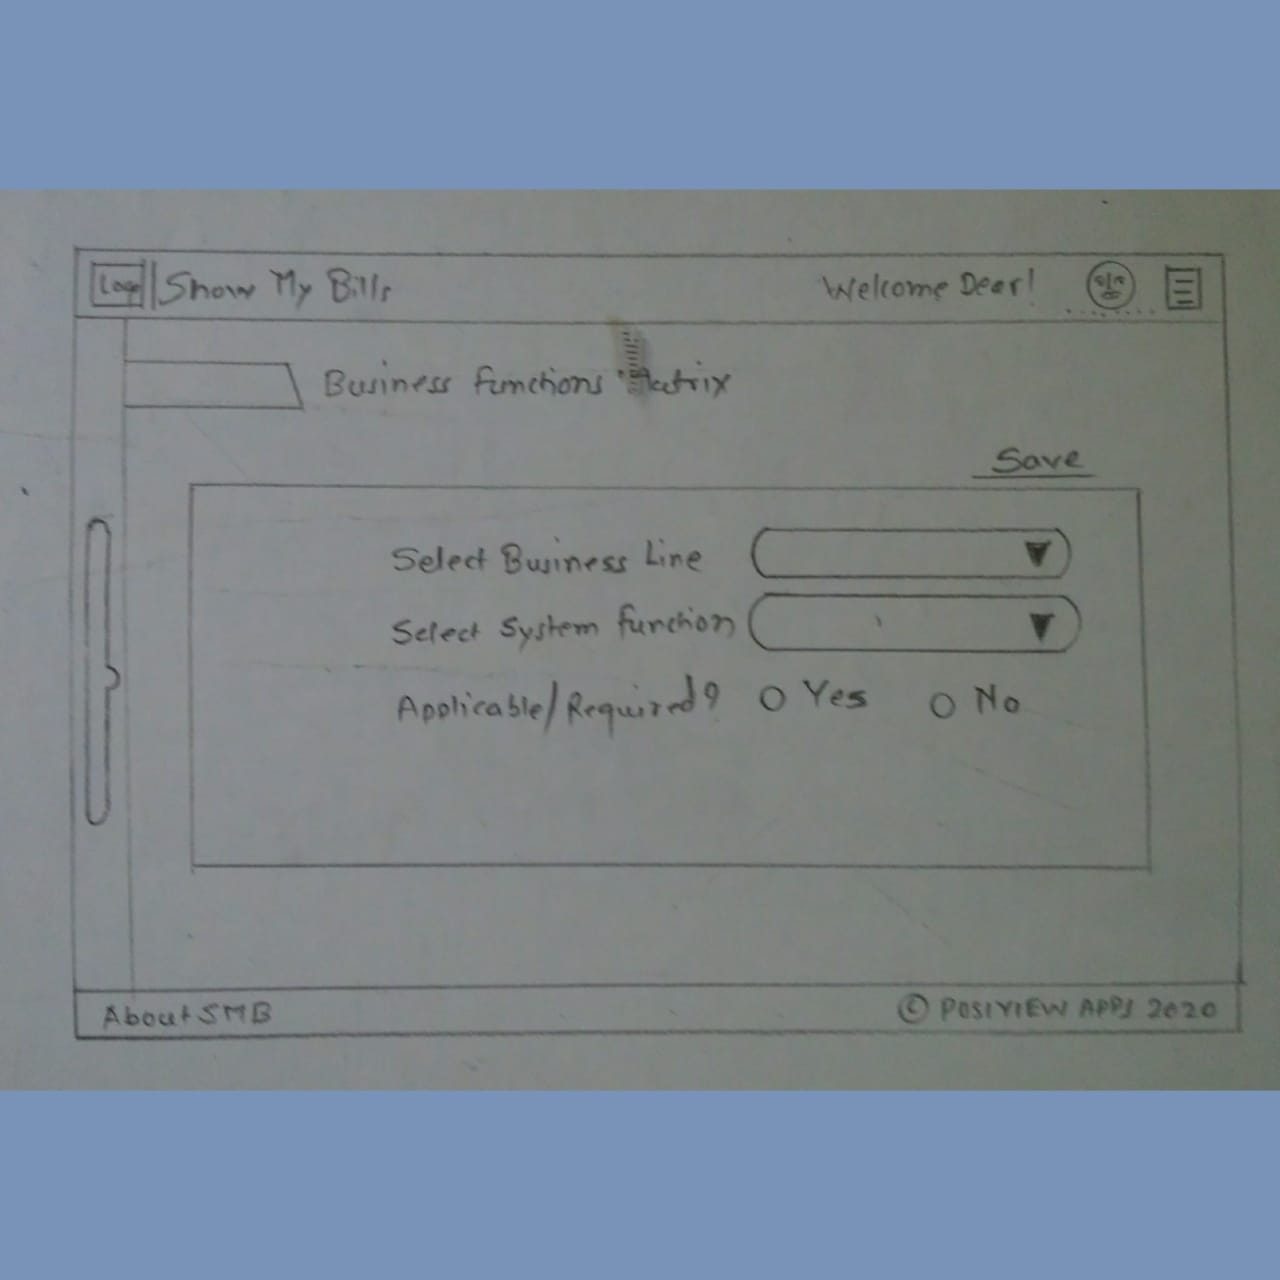 Logo Show My Bills Welcome Dear!
Business Functions Matrix
Save
Select Business Line
Select System function
Applicable/Required? Yes No
About SMB © POSIVIEW APPS 2020